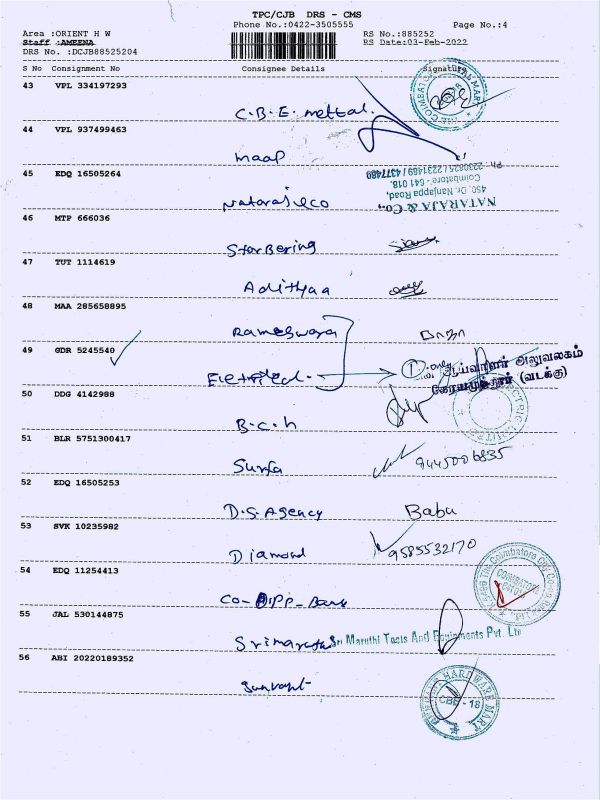 TPC/CJB DRS - CMS
Phone No.:0422-3505555 Page No.:4
Area :ORIENT H W RS No.:885252
Staff :AMEENA RS Date:03-Feb-2022
DRS No. :DCJB88525204
S No Consignment No Consignee Details Signature
43 VPL 334197293
C.B.E. mettal.
44 VPL 937499463
maap
45 EDQ 16505264
Ph : 2230825 / 2231489 / 4377489
Coimbatore - 641 018.
450, Dr. Nanjappa Road,
NATARAJA & Co.,
Nataraj & co
46 MTP 666036
Star Bering
47 TUT 1114619
Adithyaa
48 MAA 285658895
Rameshwara
49 GDR 5245540
ஆய்வாளர் அலுவலகம்
கோயமுத்தூர் (வடக்கு)
Eletrical
50 DDG 4142988
B.c.h
51 BLR 5751300417
Surfa 9445006835
52 EDQ 16505253
D.S. Agency Babu
53 SVK 10235982
Diamond 9585532170
54 EDQ 11254413
Co-opp-Bank
55 JAL 530144875
Sri Maruthi Tools And Equipments Pvt. Ltd
56 ABI 20220189352
HARDWARE MART
CBE - 18